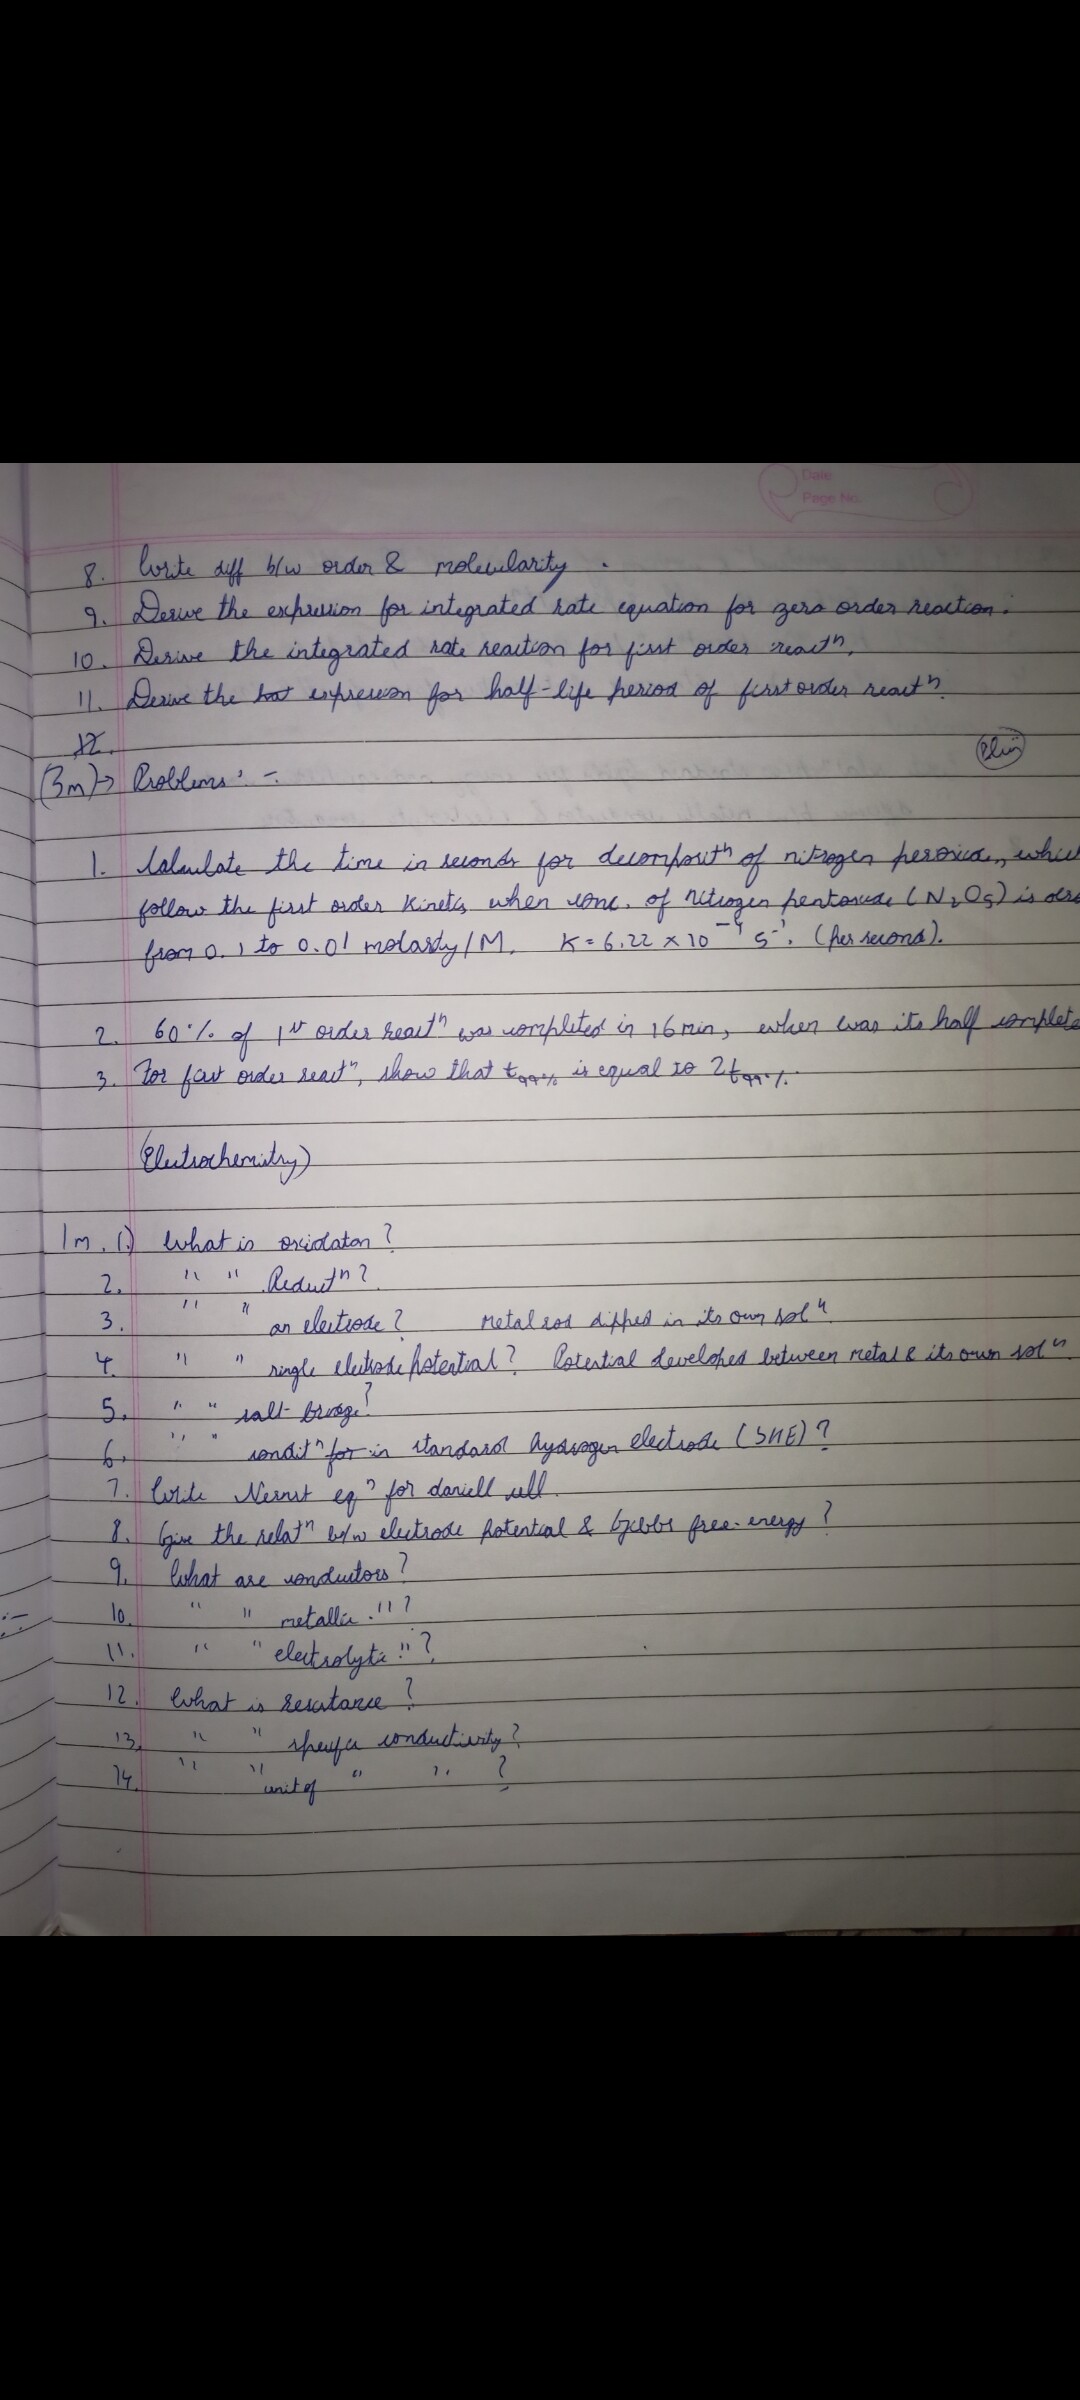 Date
Page No.
8. Write diff b/w order & molecularity .
9. Derive the expression for integrated rate equation for zero order reaction.
10. Derive the integrated rate reaction for first order reactⁿ.
11. Derive the expression for half-life period of first order reactⁿ.
12.
(3m)→ Problems : -
1. Calculate the time in seconds for decompositⁿ of nitrogen peroxide, which
follow the first order kinetics when conc. of nitrogen pentoxide (N₂O₅) is
from 0.1 to 0.01 molarity/M. K = 6.22 × 10⁻⁴ s⁻¹. (per second).
2. 60% of 1st order reactⁿ was completed in 16 min, when was its half complete
3. For first order reactⁿ, show that t₉₉% is equal to 2t₉₉%.
(Electrochemistry)
1m. 1.) What is oxidaton ?
2. " " Reductⁿ ?
3. " " an electrode ? Metal rod dipped in its own solⁿ
4. " " single electrode potential ? Potential developed between metal & its own solⁿ
5. " " salt-bridge ?
6. " " conditⁿ for in standard hydrogen electrode (SHE) ?
7. Write Nernst eqⁿ for daniell cell.
8. Give the relatⁿ b/w electrode potential & Gibbs free-energy ?
9. What are conductors ?
10. " " metallic " ?
11. " " electrolytic " ?
12. What is resistance ?
13. " " specific conductivity ?
14. " " unit of " " ?